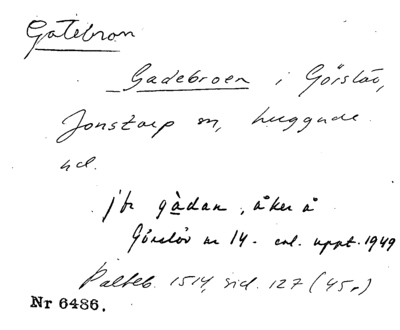 Gatebron
Gadebroen i Görslöv,
Jonstorp sn, Luggude
hd.
jfr gàdan, åker å
Görslöv nr 14. enl. uppt. 1949
Palteb. 1514, sid. 127 (45r)
Nr 6486.